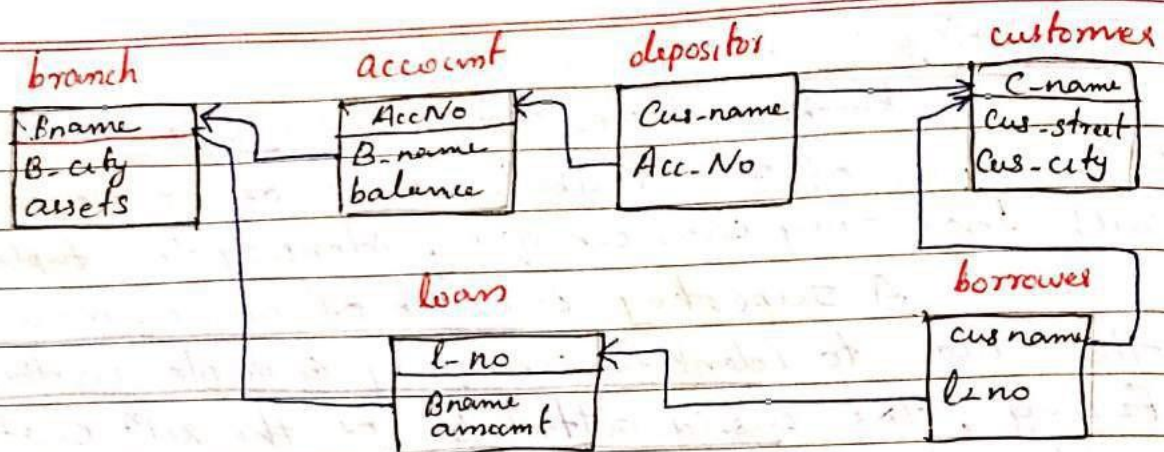 branch
Bname
B-city
assets
account
AccNo
B-name
balance
depositor
Cus-name
Acc-No
customer
C-name
Cus-street
Cus-city
loan
l-no
Bname
amount
borrower
cus name
l-no